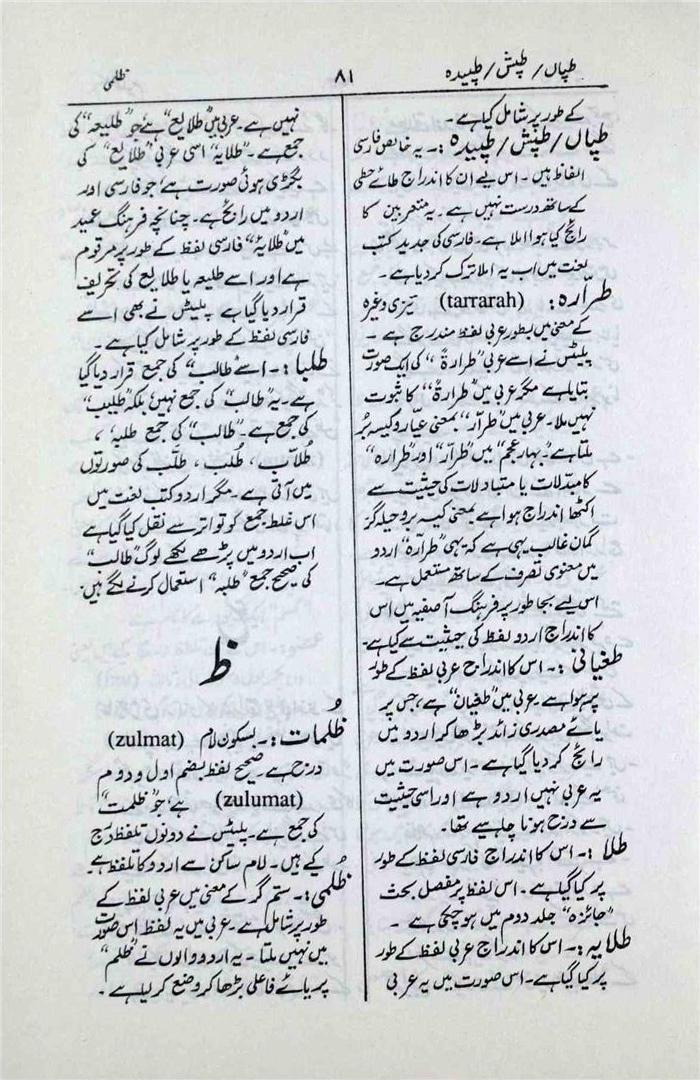 طپاں/ طپش/ طپیدہ
۸۱
ظلمی
کے طور پر شامل کیا ہے ۔
طپاں/ طپش/ طپیدہ :۔ یہ خالص فارسی
الفاظ ہیں ۔ اس لیے ان کا اندراج طائے حطی
کے ساتھ درست نہیں ہے ۔ یہ متعربین کا
رائج کیا ہوا املا ہے ۔ فارسی کی جدید کتب
لغت میں اب یہ املا ترک کر دیا ہے ۔
طرّارہ : (tarrarah) تیزی وغیرہ
کے معنی میں بطور عربی لفظ مندرج ہے ۔
پلیٹس نے اسے عربی ”طرارۃ“ کی ایک صورت
بتایا ہے مگر عربی میں ”طرارۃ“ کا ثبوت
نہیں ملا ۔ عربی میں ”طرّار“ بمعنی عیّار و کیسہ بُر
ملتا ہے ۔ ”بہار عجم“ میں ”طرّار“ اور ”طرارہ“
کا مبدّلات یا متبادلات کی حیثیت سے
اکٹھا اندراج ہوا ہے بمعنی کیسہ بر و حیلہ گر
گمان غالب یہی ہے کہ یہی ”طرّارہ“ اردو
میں معنوی تصرف کے ساتھ مستعمل ہے ۔
اس لیے بجا طور پر فرہنگ آصفیہ میں اس
کا اندراج اردو لفظ کی حیثیت سے کیا ہے ۔
طغیانی :۔ اس کا اندراج عربی لفظ کے طور
پر ہوا ہے ۔ عربی میں ”طغیان“ ہے، جس پر
یائے مصدری زائد بڑھا کر اردو میں
رائج کر دیا گیا ہے ۔ اس صورت میں
یہ عربی نہیں اردو ہے اور اسی حیثیت
سے درج ہونا چاہیے تھا ۔
طلا :۔ اس کا اندراج فارسی لفظ کے طور
پر کیا گیا ہے ۔ اس لفظ پر مفصل بحث
”جائزہ“ جلد دوم میں ہو چکی ہے ۔
طلایہ :۔ اس کا اندراج عربی لفظ کے طور
پر کیا گیا ہے ۔ اس صورت میں یہ عربی
نہیں ہے ۔ عربی میں ”طلایع“ ہے جو ”طلیعہ“ کی
جمع ہے ۔ ”طلایہ“ اسی عربی ”طلایع“ کی
بگڑی ہوئی صورت ہے جو فارسی اور
اردو میں رائج ہے ۔ چنانچہ فرہنگ عمید
میں ”طلایہ“ فارسی لفظ کے طور پر مرقوم
ہے اور اسے طلیعہ یا طلایع کی تحریف
قرار دیا گیا ہے پلیٹس نے بھی اسے
فارسی لفظ کے طور پر شامل کیا ہے ۔
طلبا :۔ اسے ”طالب“ کی جمع قرار دیا گیا
ہے ۔ یہ ”طالب“ کی جمع نہیں بلکہ ”طلیب“
کی جمع ہے ۔ ”طالب“ کی جمع طلبہ ،
طُلّاب ، طُلَّب ، طلَّب کی صورتوں
میں آتی ہے ۔ مگر اردو کتب لغت میں
اس غلط جمع کو تواتر سے نقل کیا گیا ہے
اب اردو میں پڑھے لکھے لوگ ”طالب“
کی صحیح جمع ”طلبہ“ استعمال کرنے لگے ہیں ۔
ظ
ظُلمات :۔ بسکون لام (zulmat)
درج ہے ۔ صحیح لفظ بضم اول و دوم
(zulumat) ہے جو ”ظلمت“
کی جمع ہے ۔ پلیٹس نے دونوں تلفظ درج
کیے ہیں ۔ لام ساکن سے اردو کا تلفظ ہے
ظُلمی :۔ ستم گر کے معنی میں عربی لفظ کے
طور پر شامل ہے ۔ عربی میں یہ لفظ اس صورت
میں نہیں ملتا ۔ یہ اردو والوں نے ”ظلم“
پر یائے فاعلی بڑھا کر وضع کر لیا ہے ۔